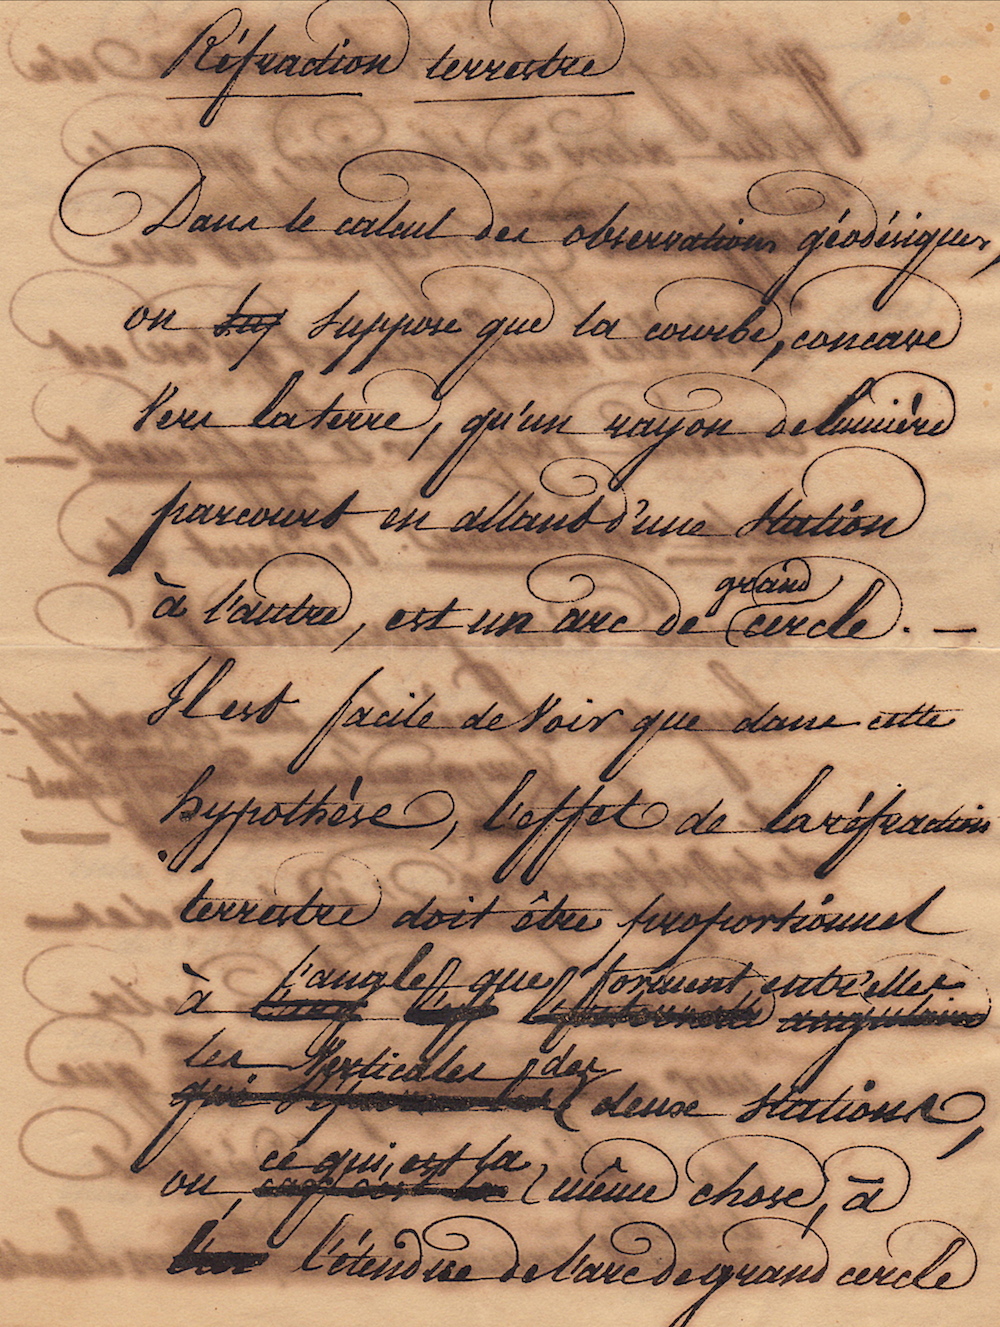 Réfraction terrestre
Dans le calcul des observations géodésiques,
on sup suppose que la courbe, concave
Vers la terre, qu'un rayon de lumière
parcourt en allant d'une station
à l'autre, est un arc de cercle. —
grand
Il est facile de Voir que dans cette
hypothèse, l'effet de la réfraction
terrestre doit être proportionnel
l'angle que forment entr'elles
à angulaire
les Verticales des
qui deux stations,
ce qui est la
ou, même chose, à
l'étendue de l'arc de grand cercle